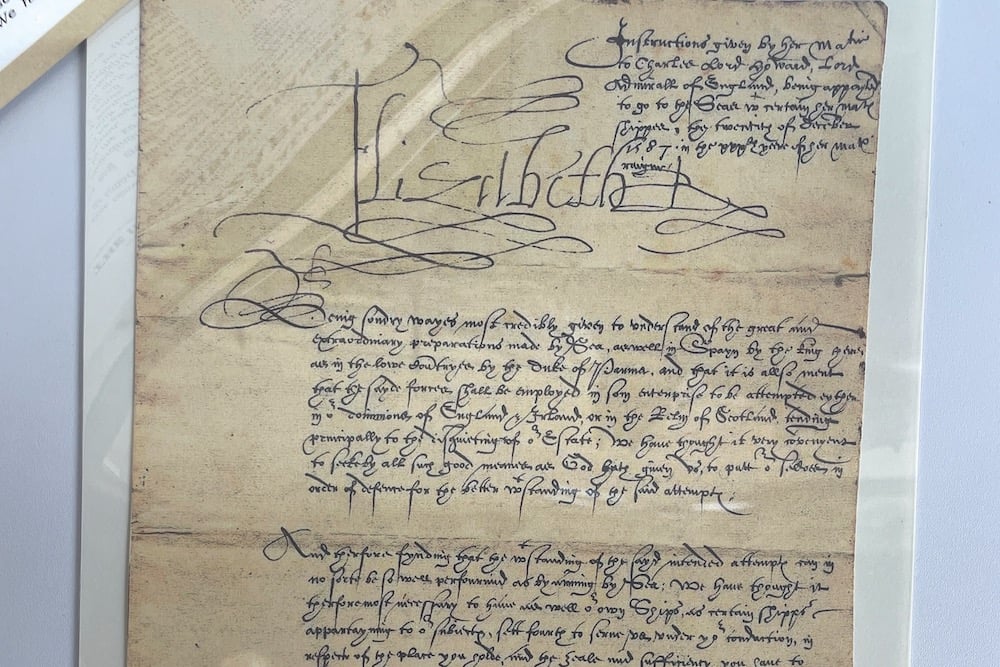 Instructions given by her Matie
to Charles Lord Howard, Lord
Admirall of England, being appoynted
to go to the Seas wt certain her Mats
shippes, the twenty of december
1587. in the xxxth yere of her Mats
raigne.
Elizabeth
Being sondry wayes most credibly given to understand of the great and
extraordinary preparations made by Sea, as well in Spayn by the king there,
as in the lowe Contryes by the Duke of Parma, and that it is allso ment
that the sayde forces shall be employed in som enterprise to be attempted eyther
in or dominions of England & Irland, or in the Relm of Scotland, tending
principally to the disquieting of or Estate; We have thought it very convenyent
to seeke by all such good meanes as God hath given us, to putt or selves in
order of defence for the better wtstanding of the said attempts;
And therfore fynding that the wtstanding of the sayd intended attempts can in
no sorte be so well perfourmid as by arming by Sea; We have thought it
therfore most necessary to have as well or own Ships, as certain shipps
appartayning to or subiects, sett fourth to serve us, under yor conduction, in
respect of the place you holde, and the zeale and sufficiency you have to